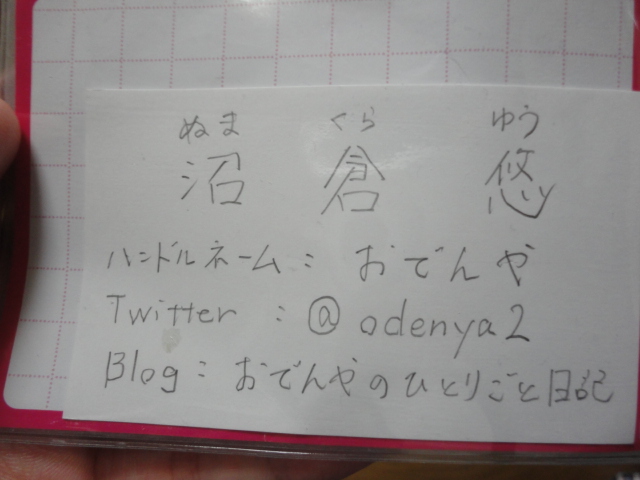 ぬま くら ゆう
沼 倉 悠
ハンドルネーム: おでんや
Twitter : @odenya2
Blog: おでんやのひとりごと日記